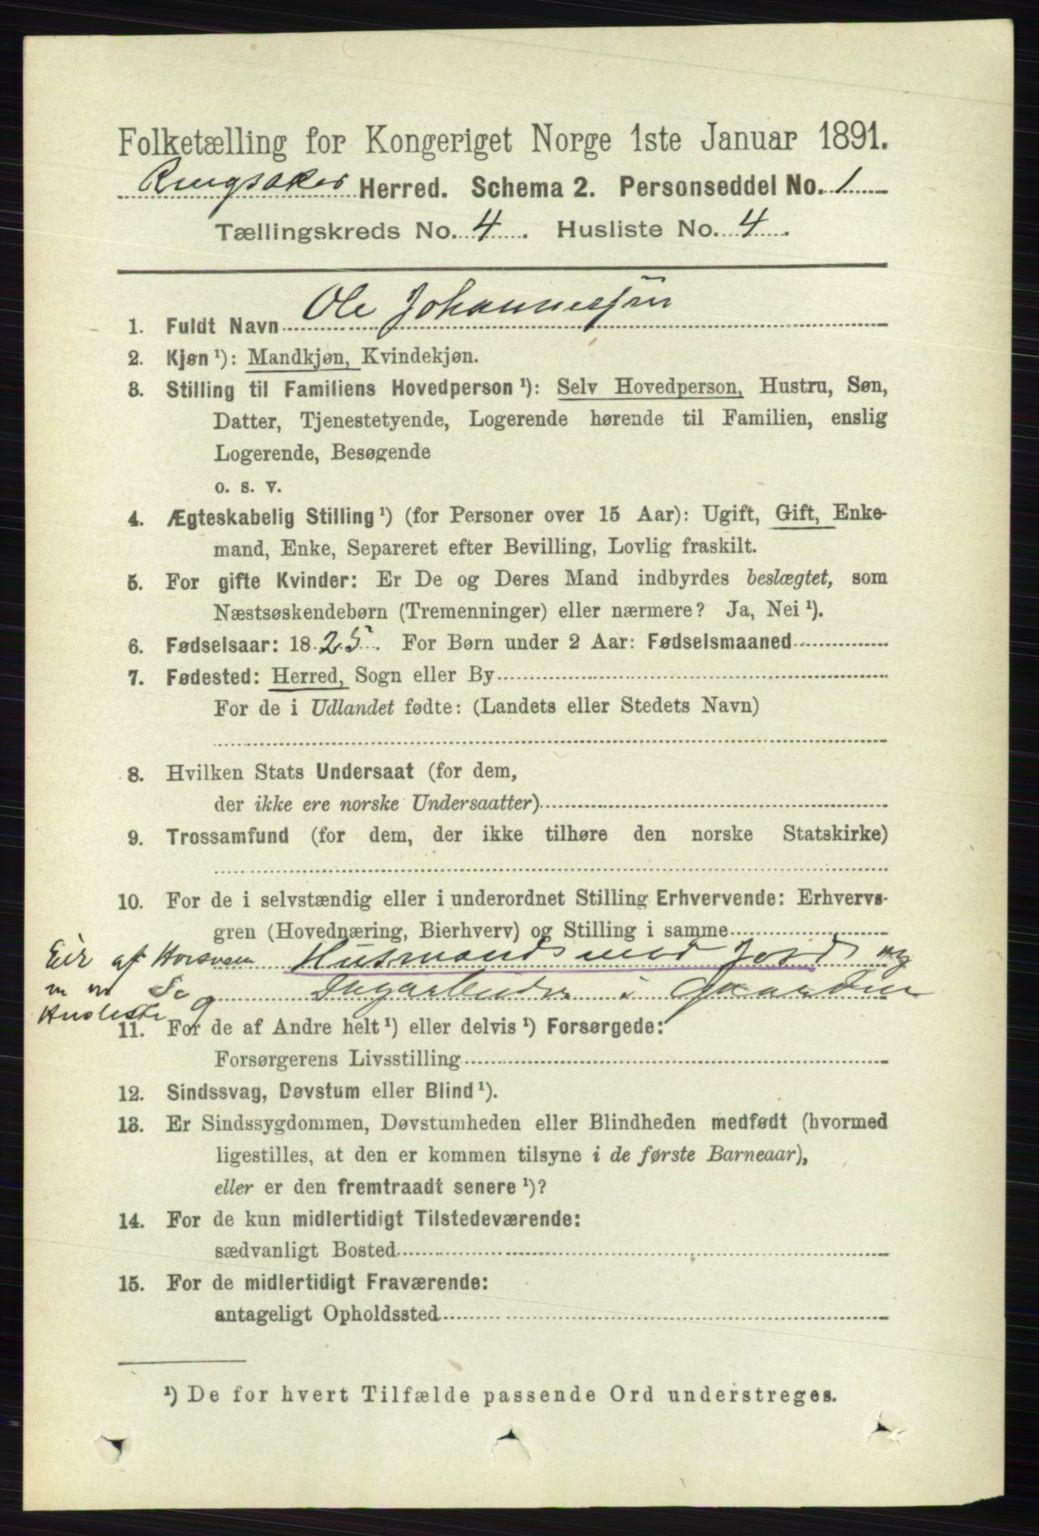 Folketælling for Kongeriget Norge 1ste Januar 1891.
Ringsaker Herred. Schema 2. Personseddel No. 1
Tællingskreds No. 4. Husliste No. 4.
1. Fuldt Navn Ole Johannesen
2. Kjøn ¹): Mandkjøn, Kvindekjøn.
3. Stilling til Familiens Hovedperson ¹): Selv Hovedperson, Hustru, Søn,
Datter, Tjenestetyende, Logerende hørende til Familien, enslig
Logerende, Besøgende
o. s. v.
4. Ægteskabelig Stilling ¹) (for Personer over 15 Aar): Ugift, Gift, Enke-
mand, Enke, Separeret efter Bevilling, Lovlig fraskilt.
5. For gifte Kvinder: Er De og Deres Mand indbyrdes beslægtet, som
Næstsøskendebørn (Tremenninger) eller nærmere? Ja, Nei ¹).
6. Fødselsaar: 1825. For Børn under 2 Aar: Fødselsmaaned
7. Fødested: Herred, Sogn eller By
For de i Udlandet fødte: (Landets eller Stedets Navn)
8. Hvilken Stats Undersaat (for dem,
der ikke ere norske Undersaatter)
9. Trossamfund (for dem, der ikke tilhøre den norske Statskirke)
10. For de i selvstændig eller i underordnet Stilling Erhvervende: Erhvervs-
gren (Hovednæring, Bierhverv) og Stilling i samme
Eier af Husmand med Jord og
Se Dagarbeider i Gaarden
Husliste 9
11. For de af Andre helt ¹) eller delvis ¹) Forsørgede:
Forsørgerens Livsstilling
12. Sindssvag, Døvstum eller Blind ¹).
13. Er Sindssygdommen, Døvstumheden eller Blindheden medfødt (hvormed
ligestilles, at den er kommen tilsyne i de første Barneaar),
eller er den fremtraadt senere ¹)?
14. For de kun midlertidigt Tilstedeværende:
sædvanligt Bosted
15. For de midlertidigt Fraværende:
antageligt Opholdssted
¹) De for hvert Tilfælde passende Ord understreges.